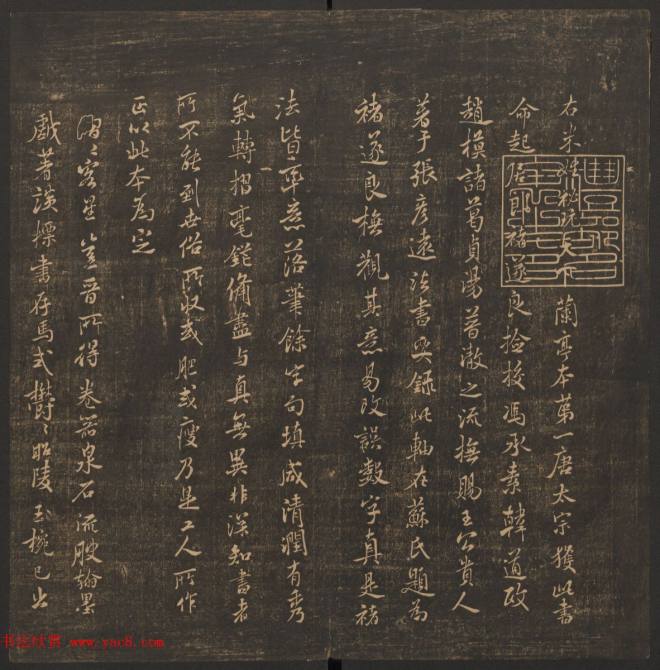 右米姓秘玩天下蘭亭本第一唐太宗獲此書
命起居郎褚遂良撿挍馮承素韓道政
趙模諸葛貞湯普澈之流撫賜王公貴人
著于張彥遠法書要錄此軸在蘇氏題為
褚遂良橅觀其意易改誤數字真是褚
法皆率意落筆餘字勾填咸清潤有秀
氣轉摺毫鋩備盡與真無異非深知書者
所不能到世俗所收或肥或瘦乃是工人所作
正以此本為定
熠〻客星豈晉所得卷器泉石流腴翰墨
戲著談標書存馬式鬱〻昭陵玉椀已出
书法欣赏 www.yac8.com